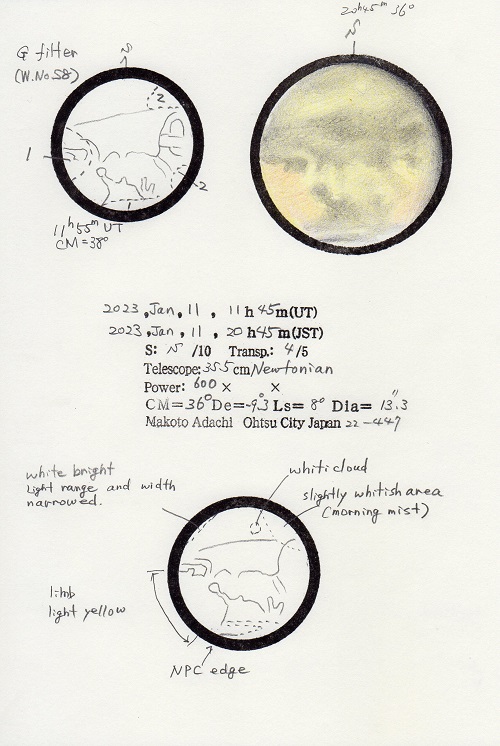 20h45m 36°
G filter
(W.No58)
2
1
2
1
11h55m UT
CM=38°
2023, Jan, 11, 11h45m(UT)
2023, Jan, 11, 20h45m(JST)
S: /10 Transp.: 4/5
Telescope: 35.5cm Newtonian
Power: 600× ×
CM=36° De=-9.3° Ls=8° Dia=13.3"
Makoto Adachi Ohtsu City Japan 22-447
white bright
Light range and width
narrowed.
whiti cloud
slightly whitish area
(morning mist)
limb
light yellow
NPC edge